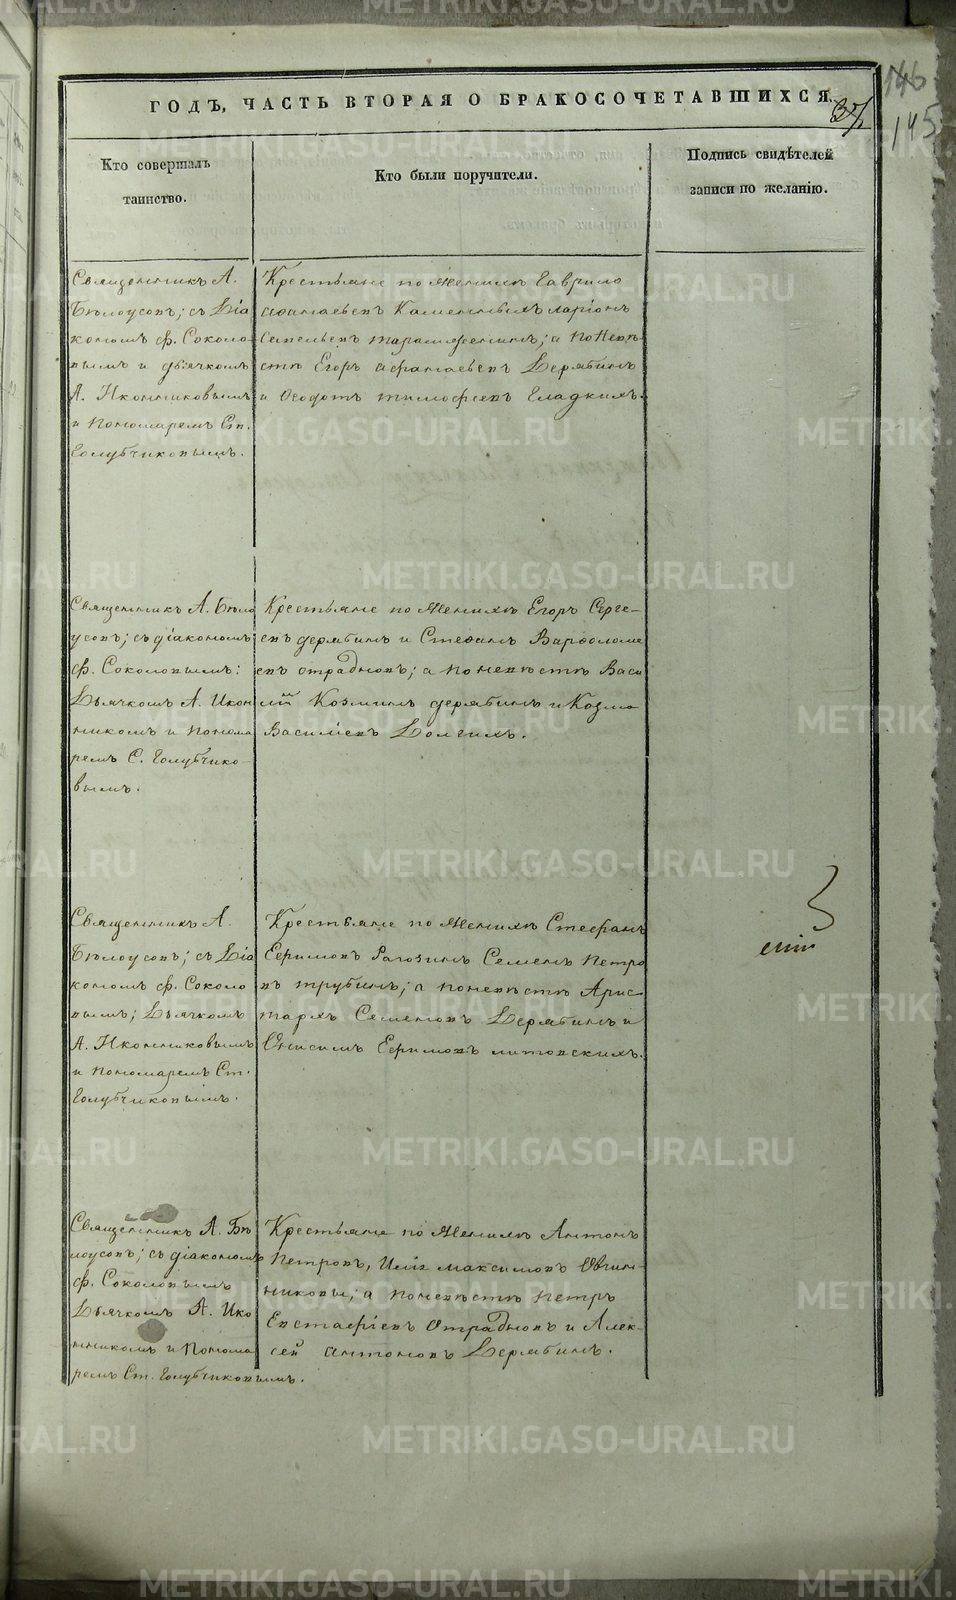 146
145
ГОДЪ, ЧАСТЬ ВТОРАЯ О БРАКОСОЧЕТАВШИХСЯ.
37
Кто совершалъ
таинство.
Кто были поручители.
Подпись свидѣтелей
записи по желанію.
Священникъ А.
Бѣлоусовъ; съ Діа
кономъ Ф. Соколо-
вымъ и дьячкомъ
А. Иконниковымъ
и пономаремъ Ст.
Голубчиковымъ.
Крестьяне по Женихѣ Гаврило
Афанасьевъ Каменныхъ ларіонъ
Савельевъ; а по Невѣ
стѣ Егоръ Афанасьевъ Дерябинъ
и Ѳеодотъ тимофѣевъ Гладкихъ.
Священникъ А. Бѣло
усовъ; съ діакономъ
Ф. Соколовымъ:
Дьячкомъ А. Икон
никомъ и Понома
ремъ С. Голубчико-
вымъ.
Крестьяне по Женихѣ Егоръ Серге-
евъ дерябинъ и Стефанъ Варфоломе
евъ отрадновъ; а по невѣстѣ Васи
лій Козминъ дерябинъ и Козма
Василіевъ Долгихъ.
Священникъ А.
Бѣлоусовъ; съ Діа
кономъ Ф. Соколо
вымъ; Дьячкомъ
А. Иконниковымъ
и пономаремъ Ст.
Голубчиковымъ.
Крестьяне по Женихѣ Стефанъ
Ефимовъ Рагозинъ Семенъ Петро
въ трубинъ; а по невѣстѣ Арис
тархъ Семеновъ Дерябинъ и
Онисимъ Ефимовъ литовскихъ.
Священникъ А. Бѣ
лоусовъ; съ діакономъ
Ф. Соколовымъ
Дьячкомъ А. Ико
нникомъ и Понома
ремъ Ст. Голубчиковымъ.
Крестьяне по Женихѣ Антонъ
Петровъ, Илія Максимовъ Овчин-
никовы; а по невѣстѣ Петръ
Евстафіевъ Отрадновъ и Алек-
сей Антоновъ Дерябинъ.
METRIKI.GASO-URAL.RU